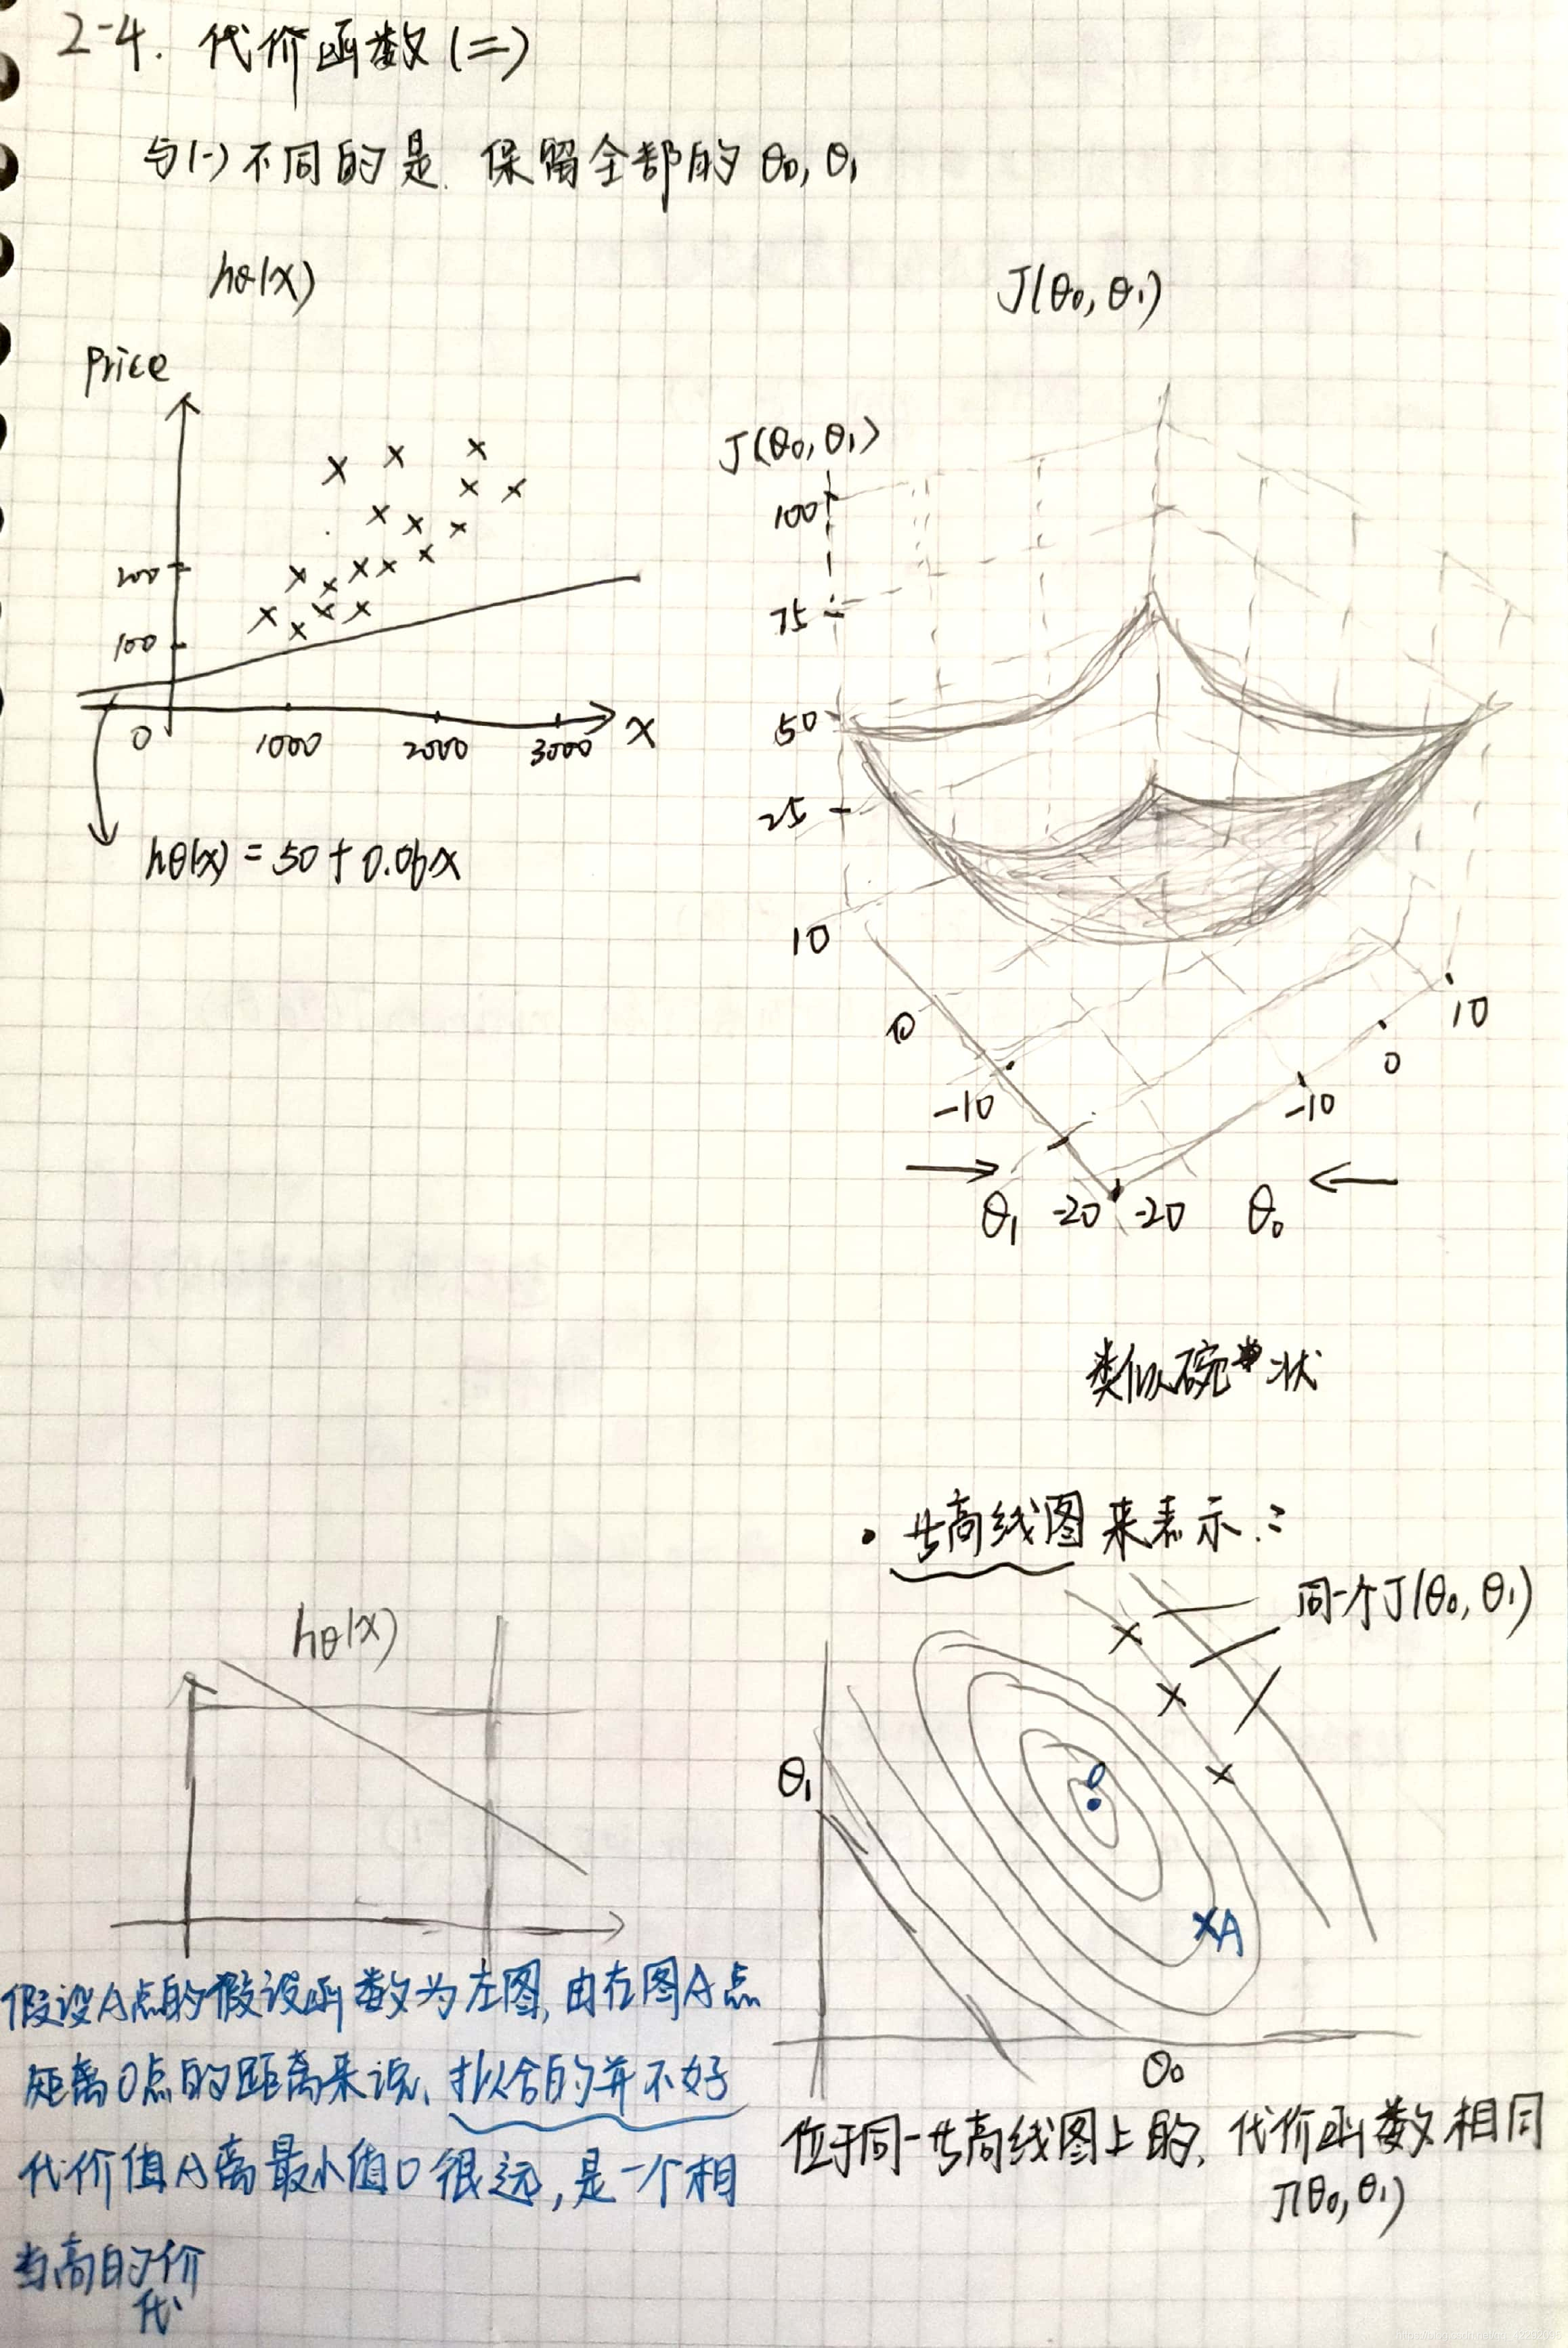 2-4. 代价函数(二)
与(一)不同的是. 保留全部的 θ0, θ1
hθ(x)
Price
200
100
0
1000
2000
3000
x
hθ(x) = 50 + 0.06x
J(θ0, θ1)
J(θ0, θ1)
100
75
50
25
10
0
-10
θ1
-20
-20
θ0
-10
0
10
类似碗状
• 等高线图来表示:
同一个J(θ0, θ1)
hθ(x)
θ1
0
A
θ0
假设A点的假设函数为左图, 由右图A点
距离0点的距离来说, 拟合的并不好
代价值A离最小值0很远, 是一个相
当高的价
代
位于同一等高线图上的, 代价函数相同
J(θ0, θ1)